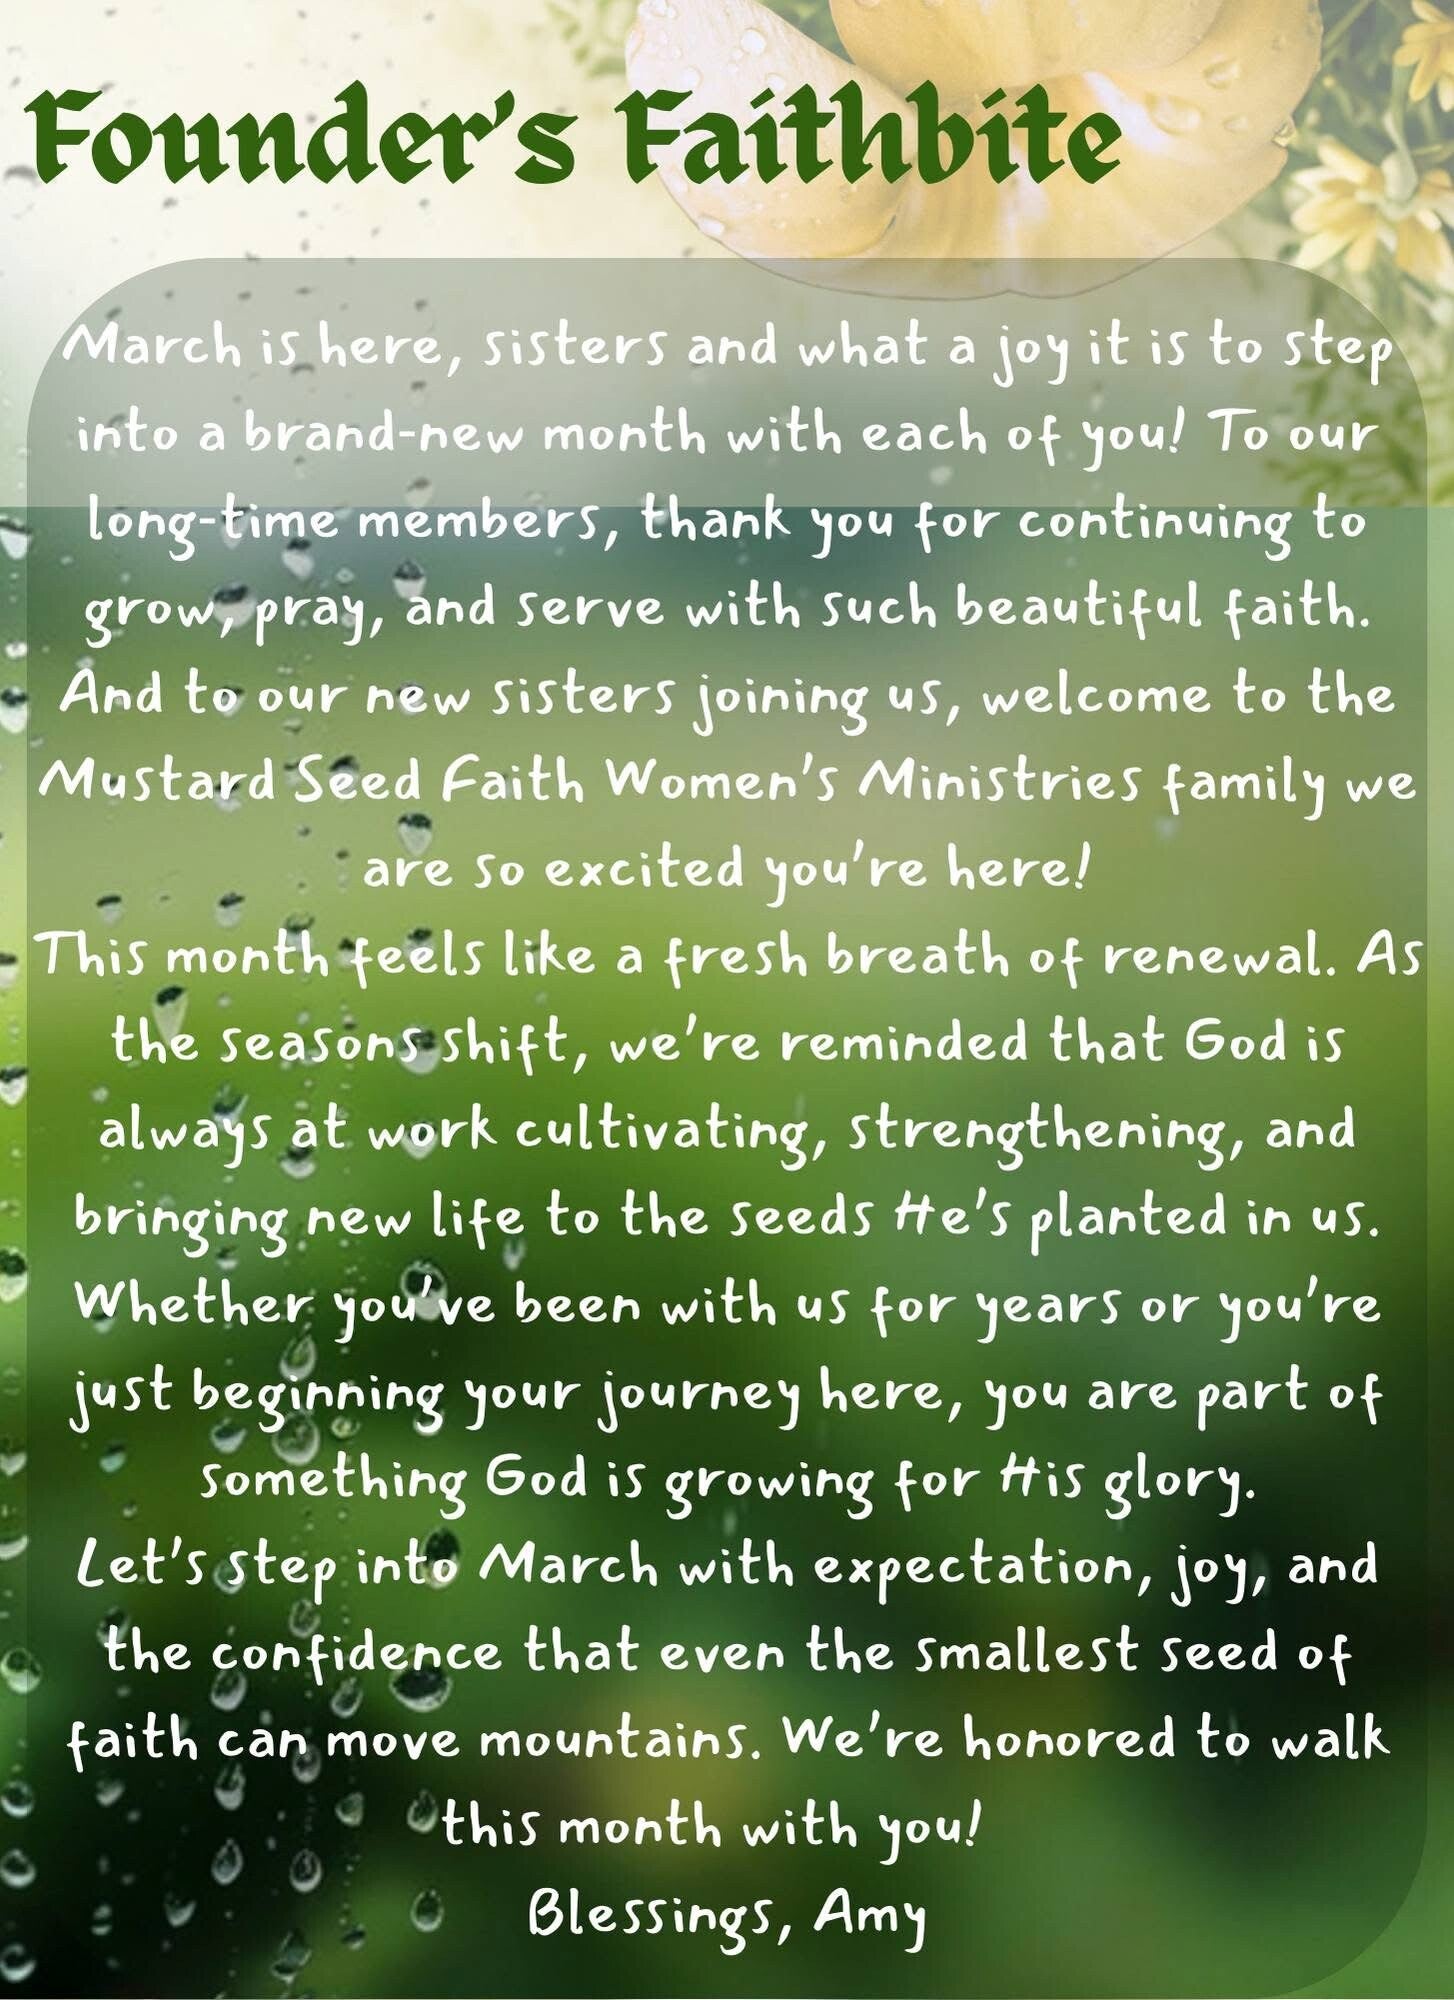 Founder's Faithbite
March is here, sisters and what a joy it is to step
into a brand-new month with each of you! To our
long-time members, thank you for continuing to
grow, pray, and serve with such beautiful faith.
And to our new sisters joining us, welcome to the
Mustard Seed Faith Women's Ministries family we
are so excited you're here!
This month feels like a fresh breath of renewal. As
the seasons shift, we're reminded that God is
always at work cultivating, strengthening, and
bringing new life to the seeds He's planted in us.
Whether you've been with us for years or you're
just beginning your journey here, you are part of
something God is growing for His glory.
Let's step into March with expectation, joy, and
the confidence that even the smallest seed of
faith can move mountains. We're honored to walk
this month with you!
Blessings, Amy